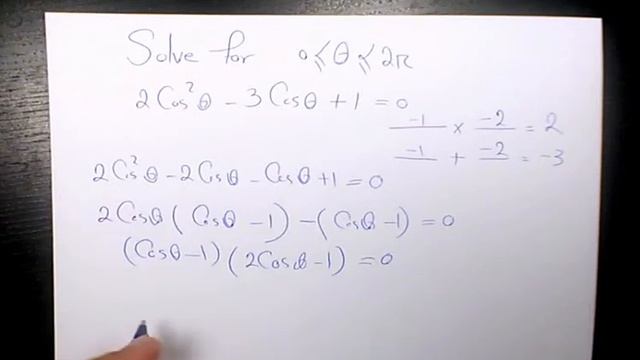 Solve for 0⩽θ⩽2π
2Cos²θ - 3Cosθ + 1 = 0
-1 × -2 = 2
-1 + -2 = -3
2Cos²θ - 2Cosθ - Cosθ + 1 = 0
2Cosθ (Cosθ - 1) - (Cosθ - 1) = 0
(Cosθ - 1) (2Cosθ - 1) = 0